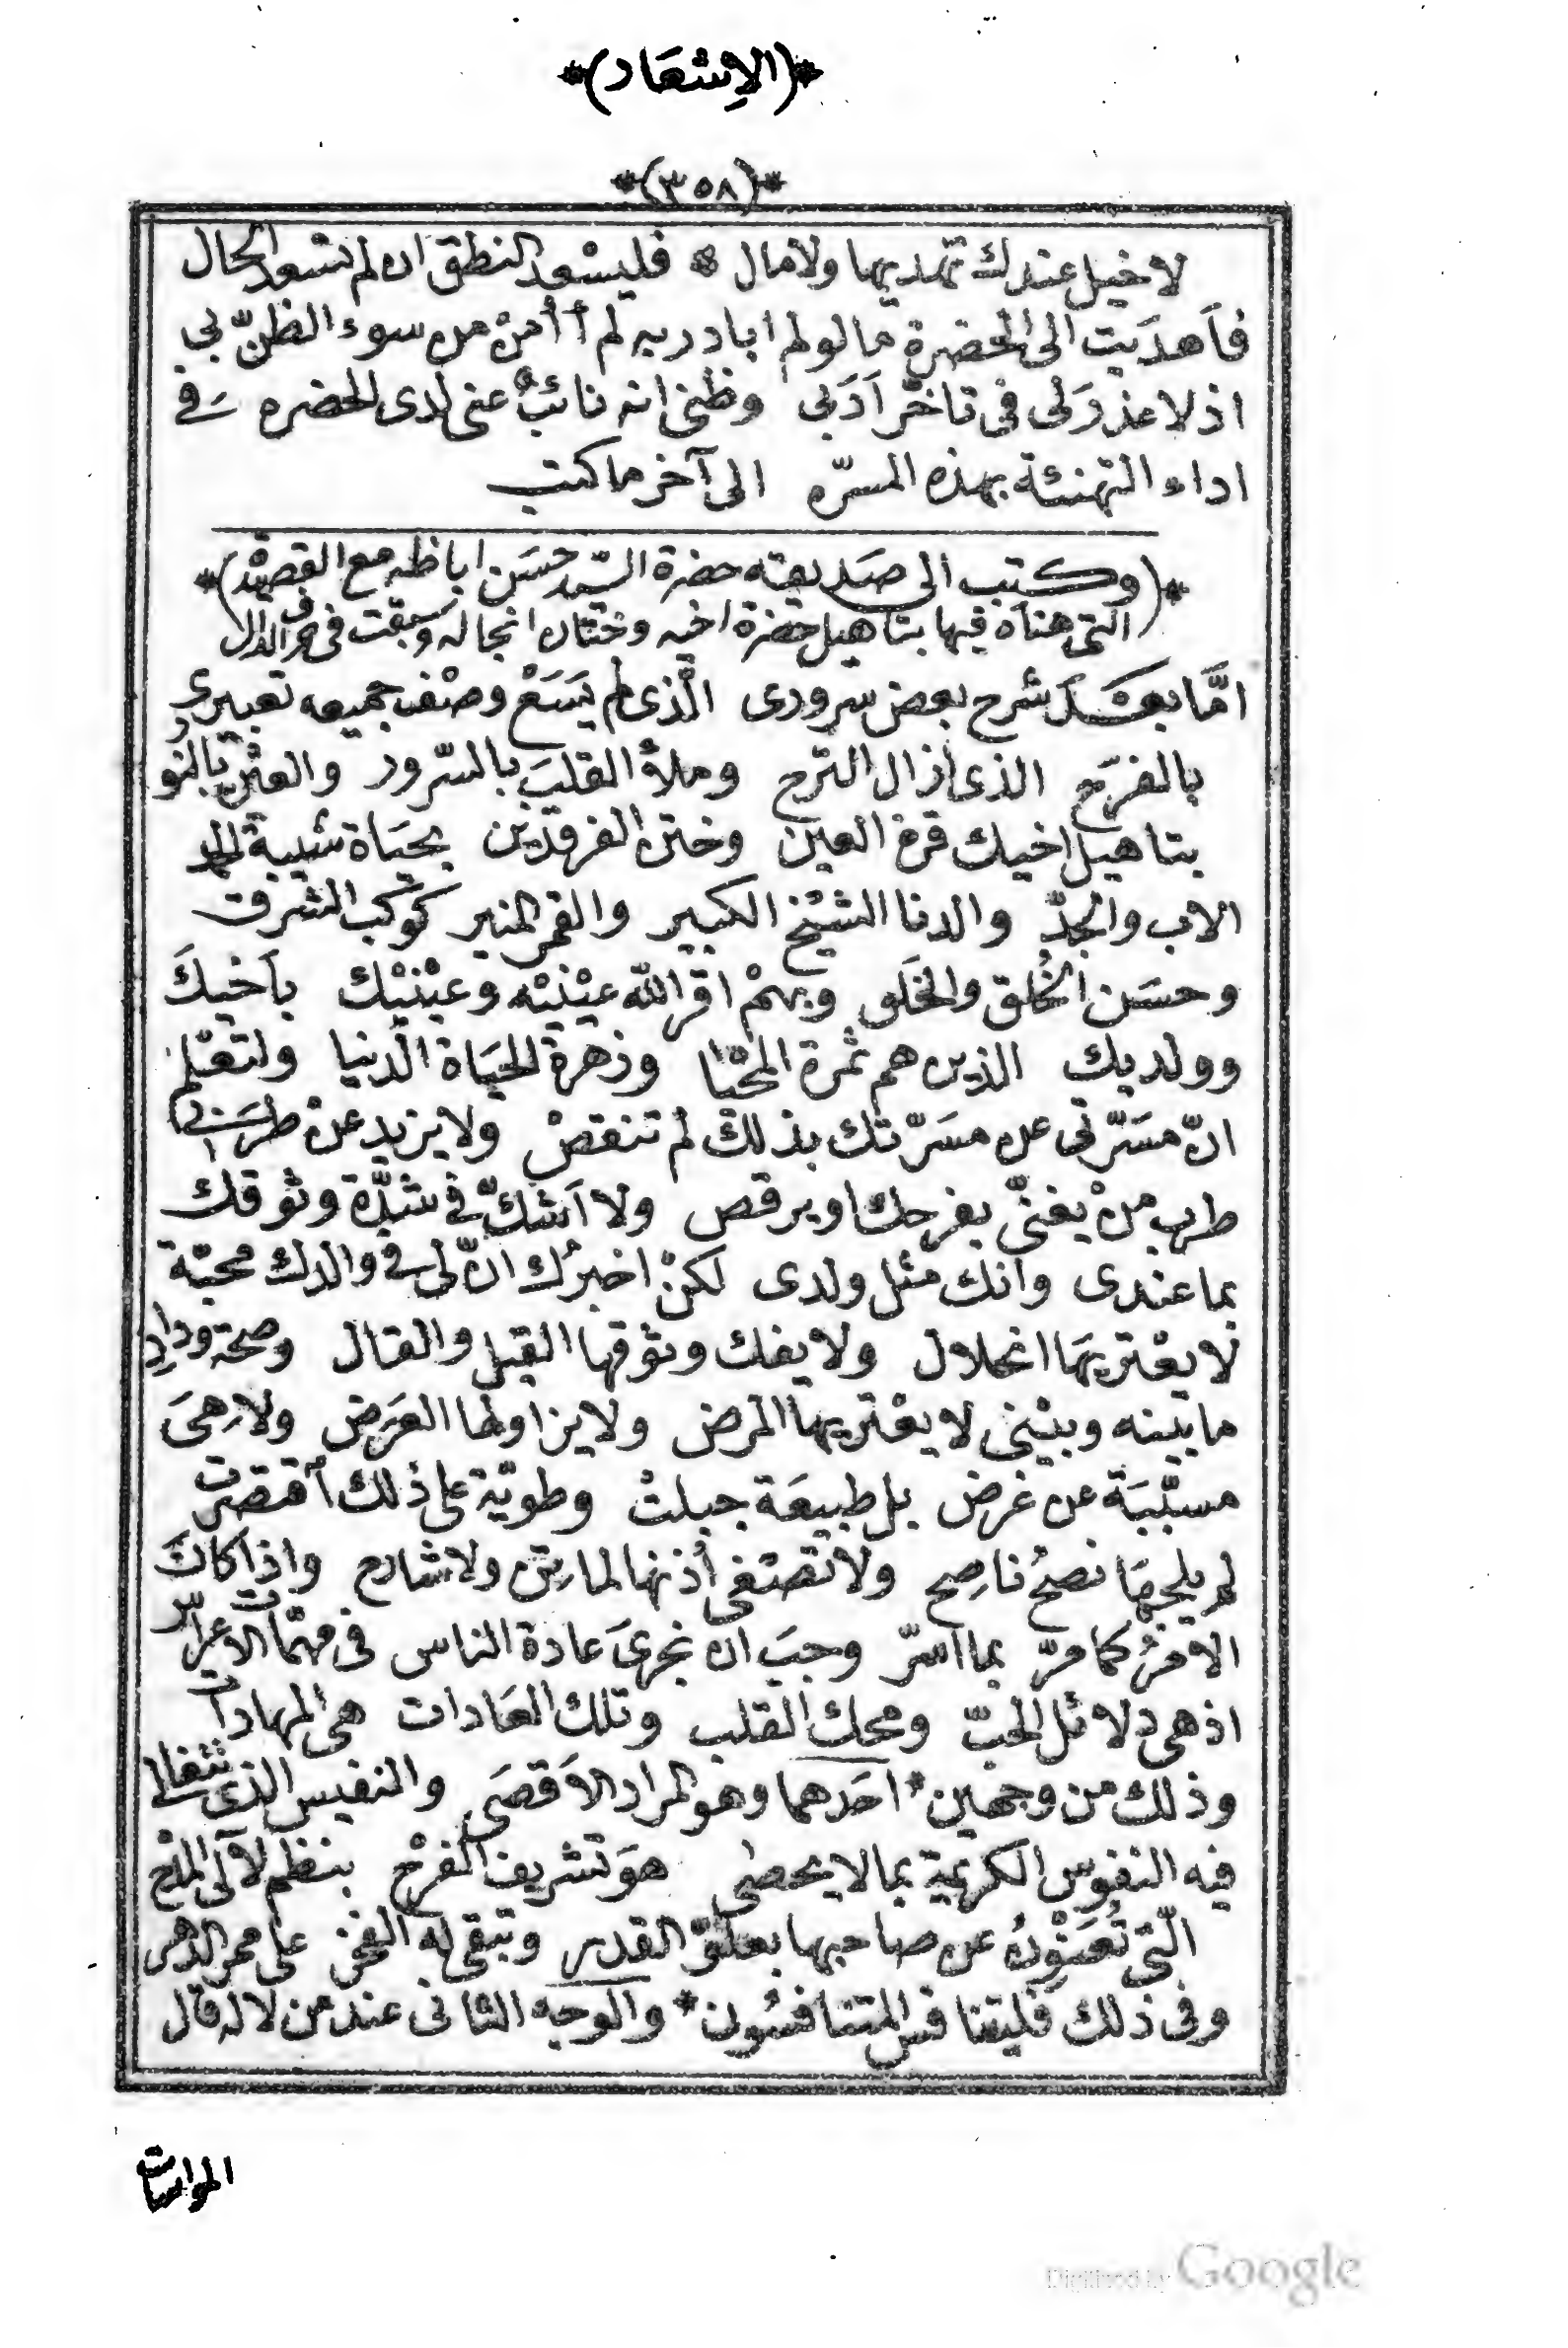 *(الإسعاد)*
*(٣٥٨)*
لا خيل عندك تهديها ولا مال * فليسعد النطق ان لم تسعد الحال
فاَهديت الى الحضرة ما لو لم ابادر به لم أأمن من سوء الظنّ بى
اذ لا عذر لى فى تاخر اَدَبى وظنى انه نائب عنى لدى الحضره فى
اداء التهنئة بهذه المسرّه الى آخر ما كتب
*(وكتب الى صديقه حضرة السّيد حسَن اباظه مع القصيدة)*
التى هنأه فيها بتاهيل حضرة اخيه وختان انجاله وسبقت فى حرف الدال
امَّا بعد شرح بعض سرورى الّذى لم يَسَعْ وصْف جميعه تعبيرى
بالفرَح الذى ازال التّرح وملأ القلبَ بالسّرور والعين بالنور
بتاهيل اخيك قرة العين وختن الفرقدين بحيَاة شيبة الحمد
الاب والجدّ والدنا الشيْخ الكبير والقمر المنير كوكب الشرق
وحسَن الخُلق والخَلق وبهمْ اقر اللّه عيْنيْه وعيْنيْك باَخيكَ
وولديك الذين هم ثمرة المحْيا وزهرة الحيَاة الدّنيا ولتعْلم
انّ مسَرّتى عن مسَرّتك بذلك لم تنقصْ ولا يزيد عنْ طرَبى
طرب منْ يغنّى بفرحك او يرقص ولا اَشكّ فى شدَّة وثوقك
بما عندى وانك مثل ولدى لكنْ اخبرُك انّ لى فى والدك محبّة
لا يعْتريهَا انحلال ولا يفك وثوقها القيل والقال وصحة ودادِ
ما بيْنه وبيْنى لا يعْتريها المرض ولا يزاولها العَرَض ولا هىَ
مسبّبَة عن غرض بل طبيعَة جبلتْ وطويّة على ذلك اقتصرت
لم يلجهَا نصحُ ناصِح ولا تصْغى أذنها لماتن ولا شارح واذا كانَ
الامرُ كما مرّ بما اسرّ وجبَ ان نجرىَ عادة الناس فى مهمّات الاعراس
اذ هى دلائل الحبّ ومحك القلب وتلك العَادات هى المهادات
وذلك من وجهين * احَدهما وهو المراد الاَقصَى والنفيس الذى تتغالى
فيه النفوس الكريمية بما لا يحصى هوَ تشريف الفرَح بنظم لآلى المدْح
الّتى تُعَنْوِنُ عن صاحبها بعلوّ القدر وتبقى له الفخر على ممر الدهر
وفى ذلك فليتنافس المتنافسُون * والوجه الثانى عند من لا له قال
المواسات
Digitized by Google